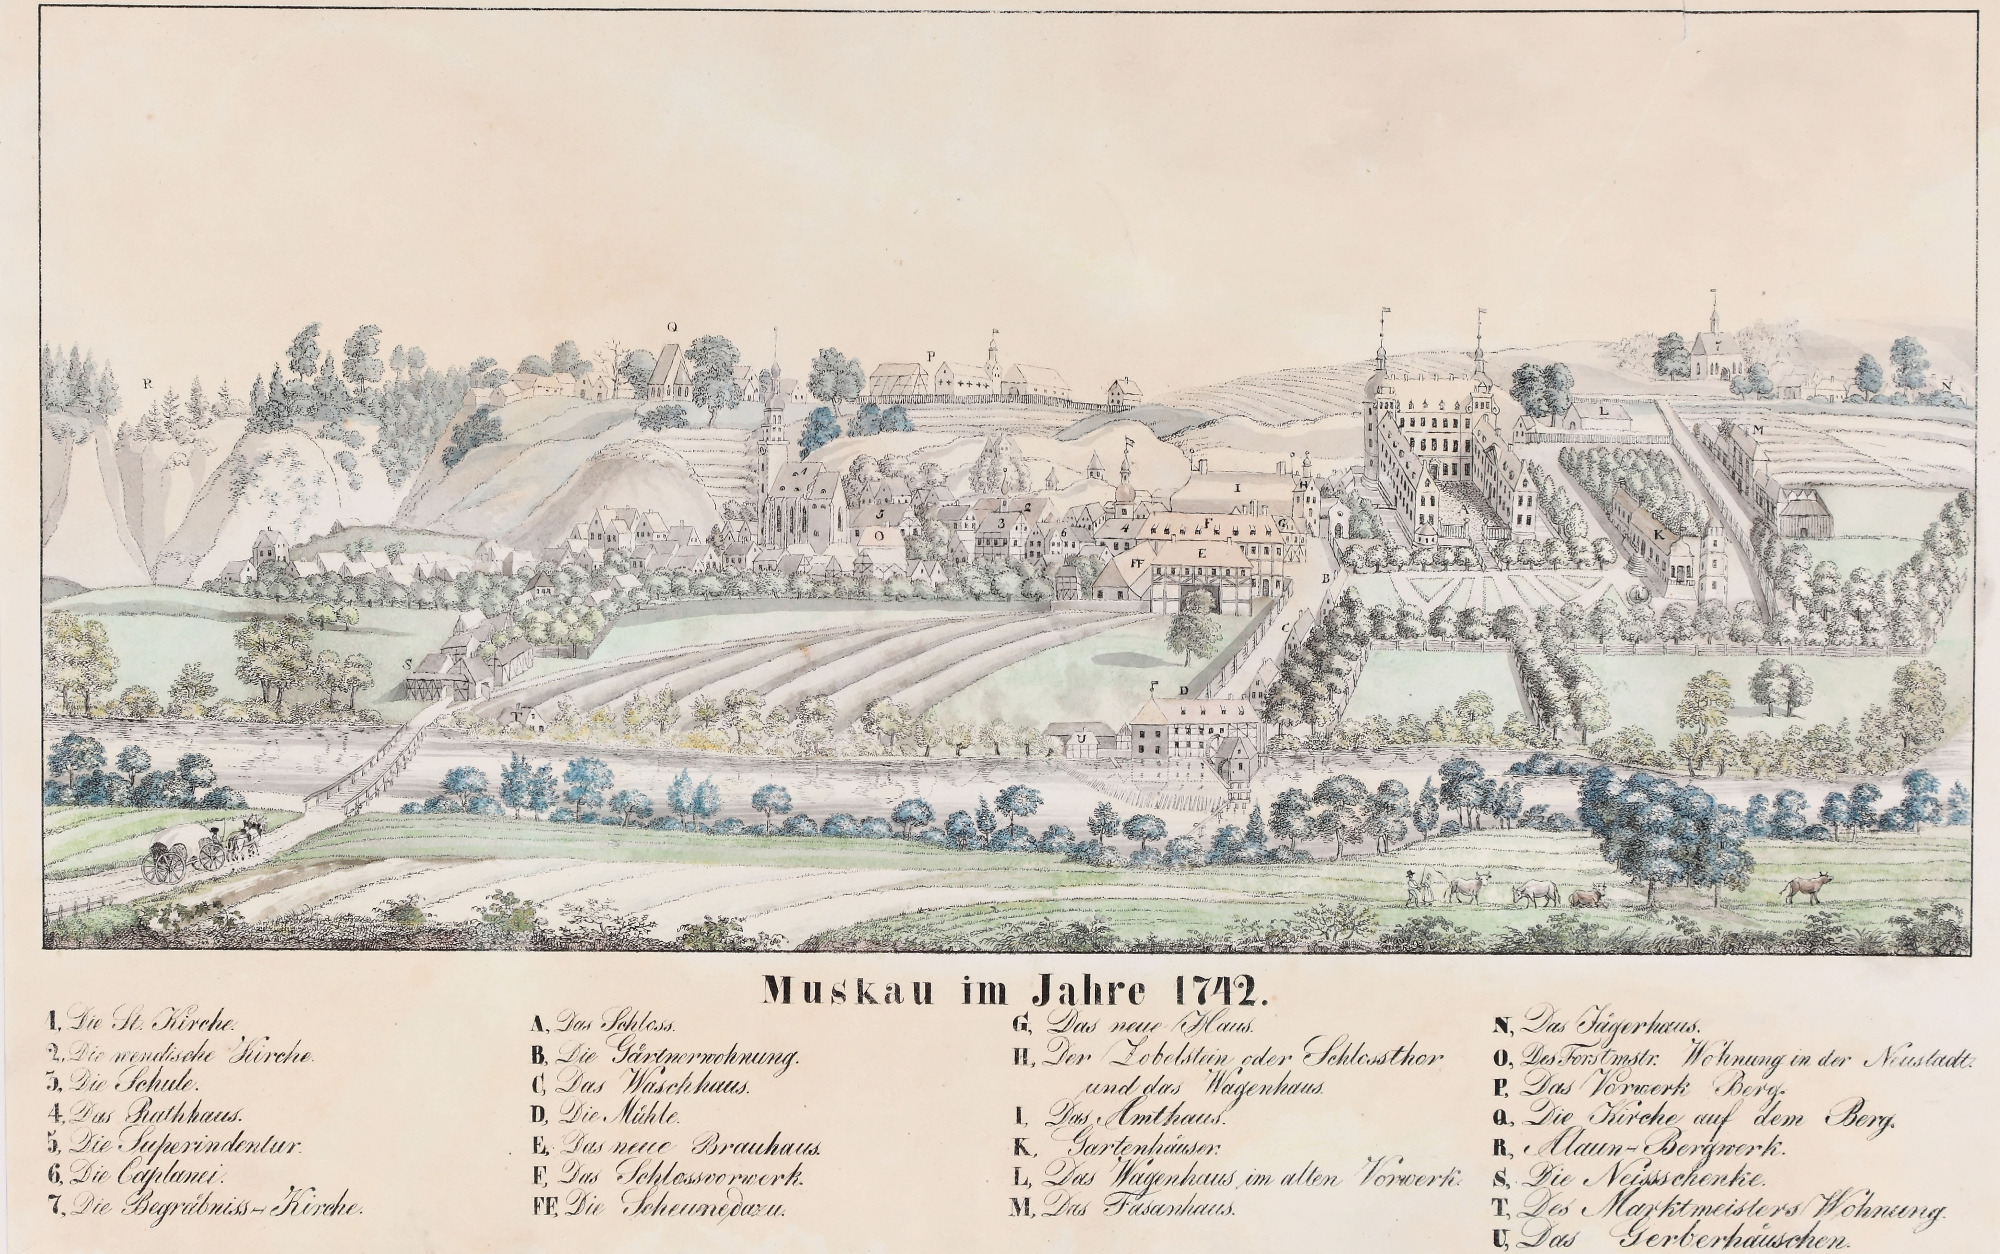 R
Q
P
N
L
M
H
I
1
5
2
3
O
6
4
F
G
H
A
K
E
FF
B
C
S
T
D
U
Muskau im Jahre 1742.
1, Die St. Kirche.
2, Die wendische Kirche.
3, Die Schule.
4, Das Rathhaus.
5, Die Superindentur.
6, Die Caplanei.
7, Die Begräbniss-Kirche.
A, Das Schloss.
B, Die Gärtnerwohnung.
C, Das Waschhaus.
D, Die Mühle.
E, Das neue Brauhaus.
F, Das Schlossvorwerk.
FF, Die Scheune dazu.
G, Das neue Haus.
H, Der Zobelstein oder Schlossthor
und das Wagenhaus.
I, Das Amthaus.
K, Gartenhäuser.
L, Das Wagenhaus im alten Vorwerk.
M, Das Fasanhaus.
N, Das Jägerhaus.
O, Des Forstmstr. Wohnung in der Neustadt.
P, Das Vorwerk Berg.
Q, Die Kirche auf dem Berg.
R, Alaun-Bergwerk.
S, Die Neissschenke.
T, Des Marktmeisters Wohnung.
U, Das Gerberhäuschen.